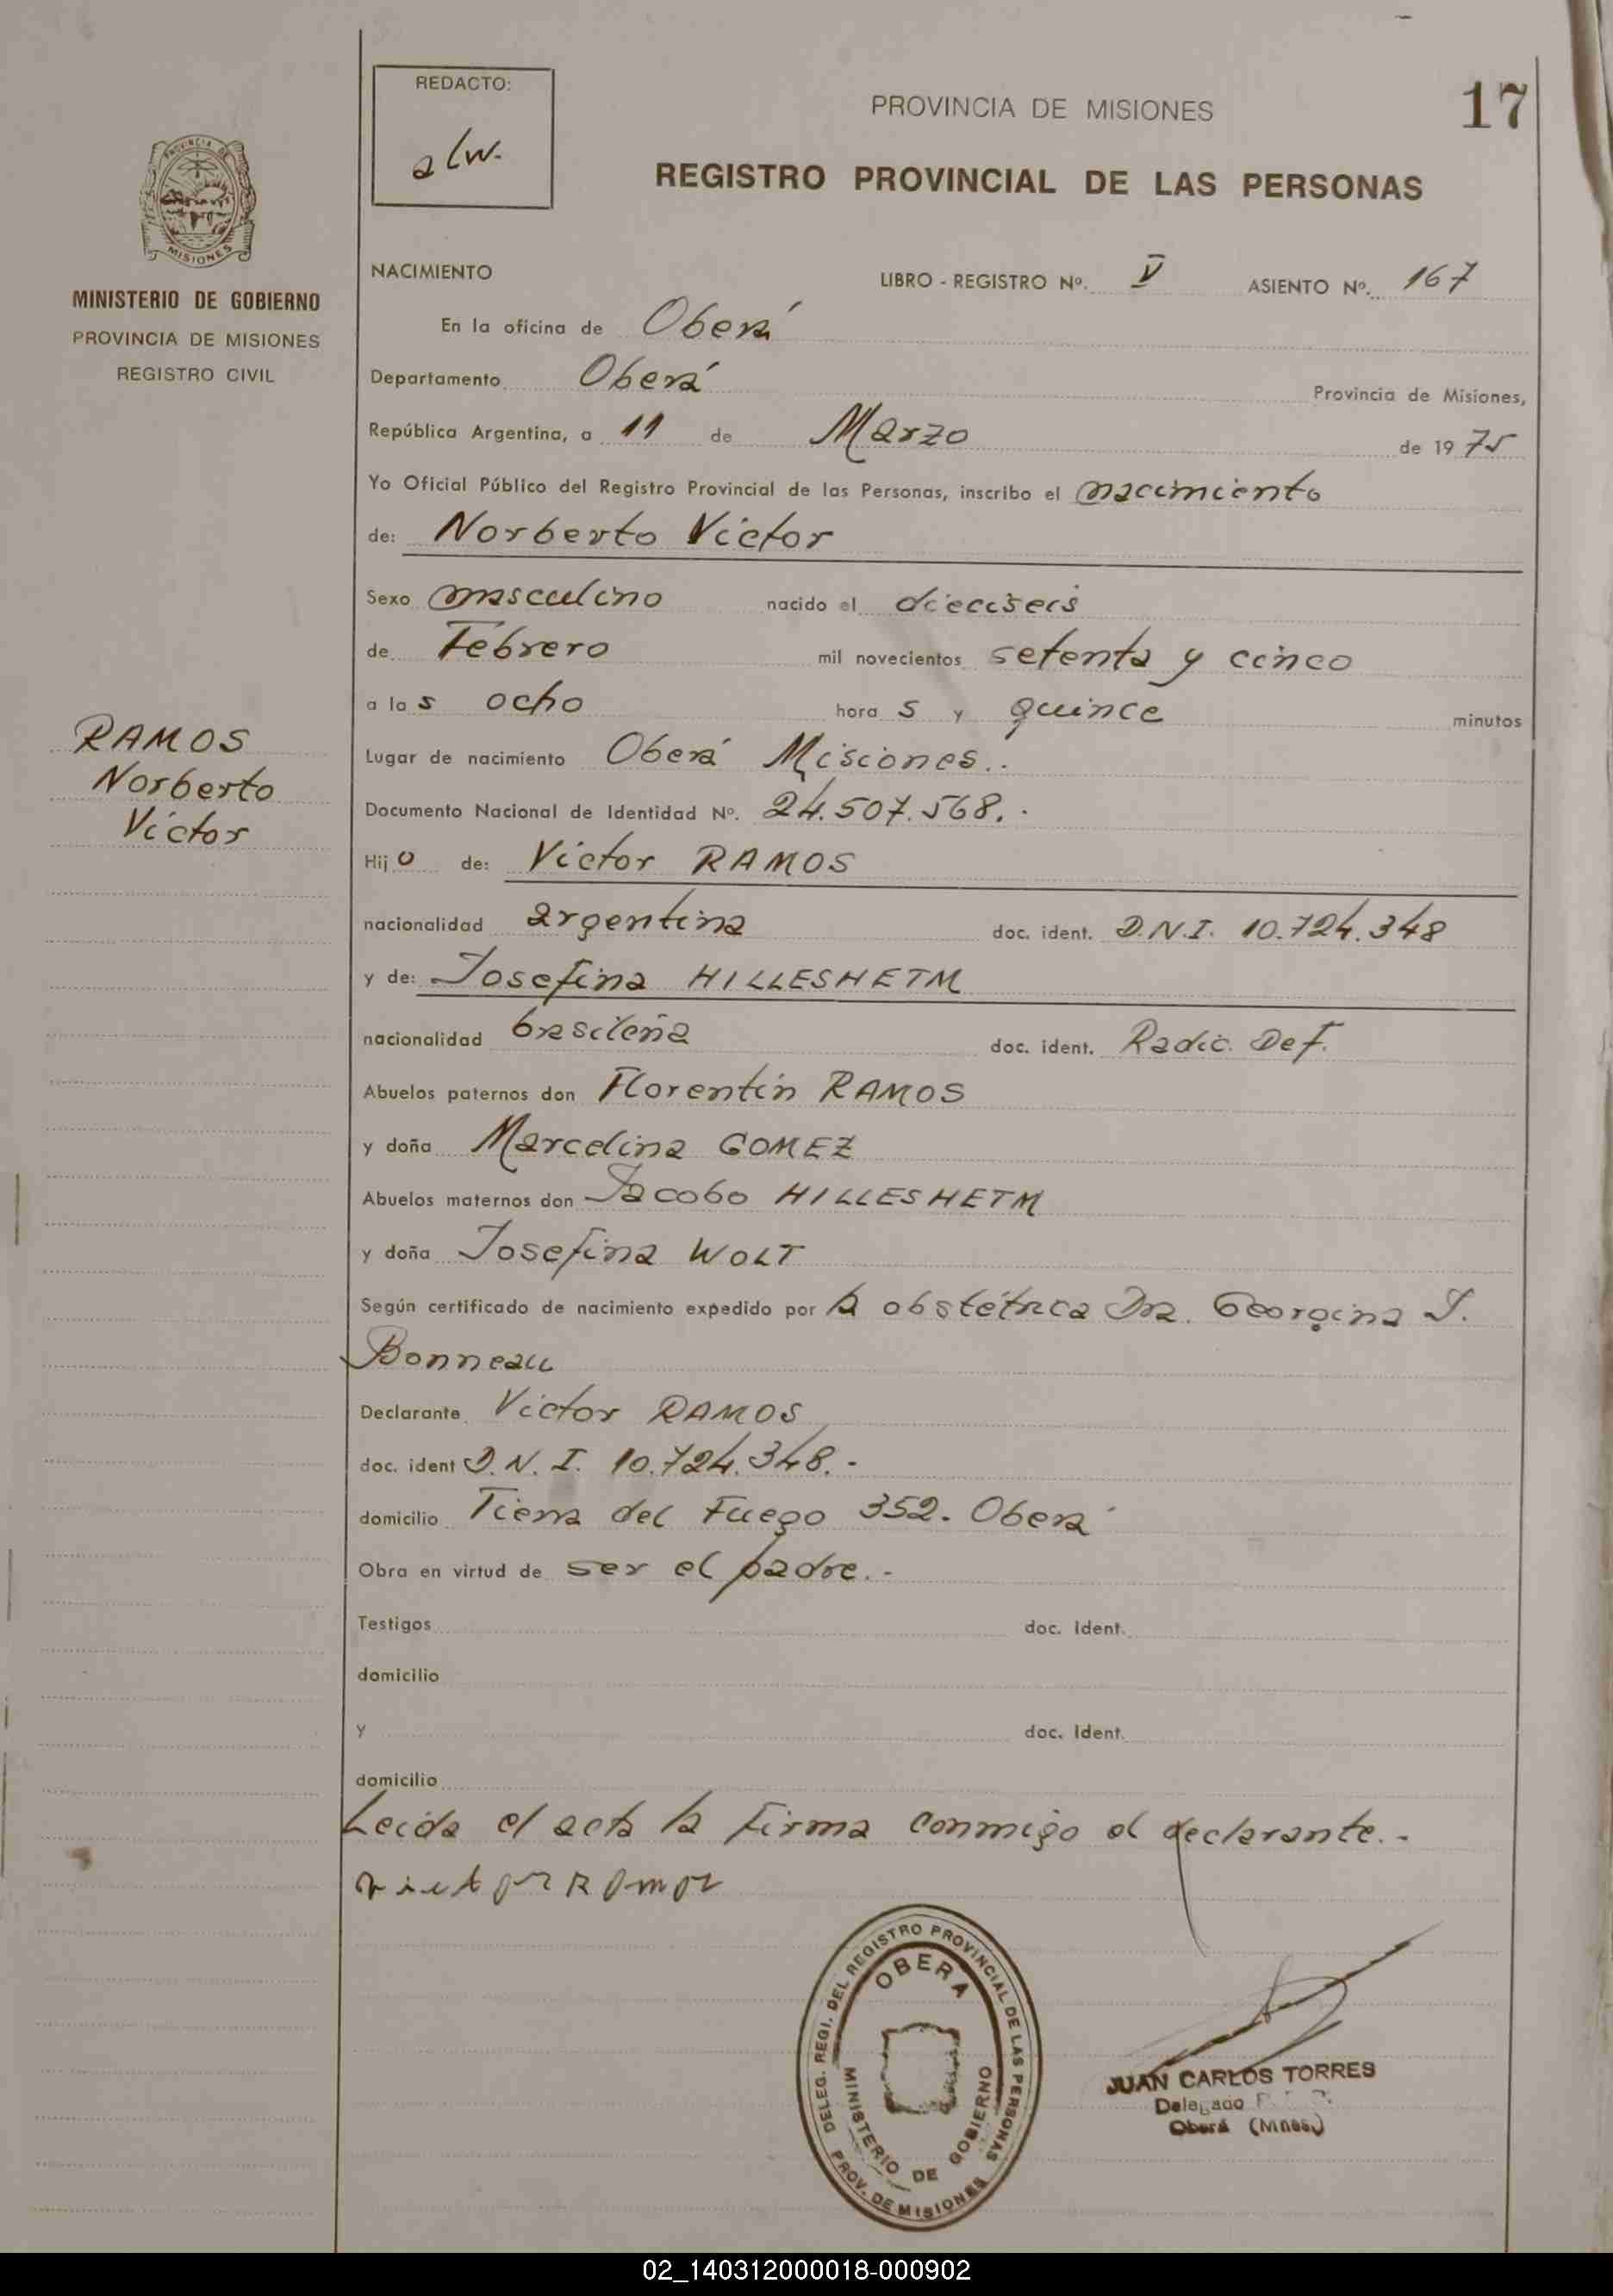 REDACTO:
alw.
PROVINCIA DE MISIONES
17
REGISTRO PROVINCIAL DE LAS PERSONAS
PROVINCIA DE
MISIONES
MINISTERIO DE GOBIERNO
PROVINCIA DE MISIONES
REGISTRO CIVIL
NACIMIENTO LIBRO - REGISTRO Nº. V ASIENTO Nº. 167
En la oficina de Oberá
Departamento Oberá Provincia de Misiones,
República Argentina, a 11 de Marzo de 1975
Yo Oficial Público del Registro Provincial de las Personas, inscribo el nacimiento
de: Norberto Victor
Sexo masculino nacido el dieciseis
de Febrero mil novecientos setenta y cinco
a las ocho horas y quince minutos
RAMOS
Norberto
Victor
Lugar de nacimiento Oberá Misiones.
Documento Nacional de Identidad Nº. 24.507.568.-
Hijo de: Victor RAMOS
nacionalidad argentina doc. ident. D.N.I. 10.724.348
y de: Josefina HILLESHETM
nacionalidad brasileña doc. ident. Radic. Def.
Abuelos paternos don Florentin RAMOS
y doña Marcelina GOMEZ
Abuelos maternos don Jacobo HILLESHETM
y doña Josefina WOLT
Según certificado de nacimiento expedido por la obstétrica Dra. Georgina S.
Bonneau
Declarante Victor RAMOS
doc. ident D.N.I. 10.724.348.-
domicilio Tierra del Fuego 352. Oberá
Obra en virtud de ser el padre.-
Testigos doc. Ident.
domicilio
y doc. Ident.
domicilio
Leida el acta la firma conmigo el declarante.-
victor Ramos
DELEG. REGI. DEL REGISTRO PROVINCIAL DE LAS PERSONAS
OBERA
MINISTERIO DE GOBIERNO
PROV. DE MISIONES
JUAN CARLOS TORRES
Delegado
Oberá (Mnes.)
02_140312000018-000902